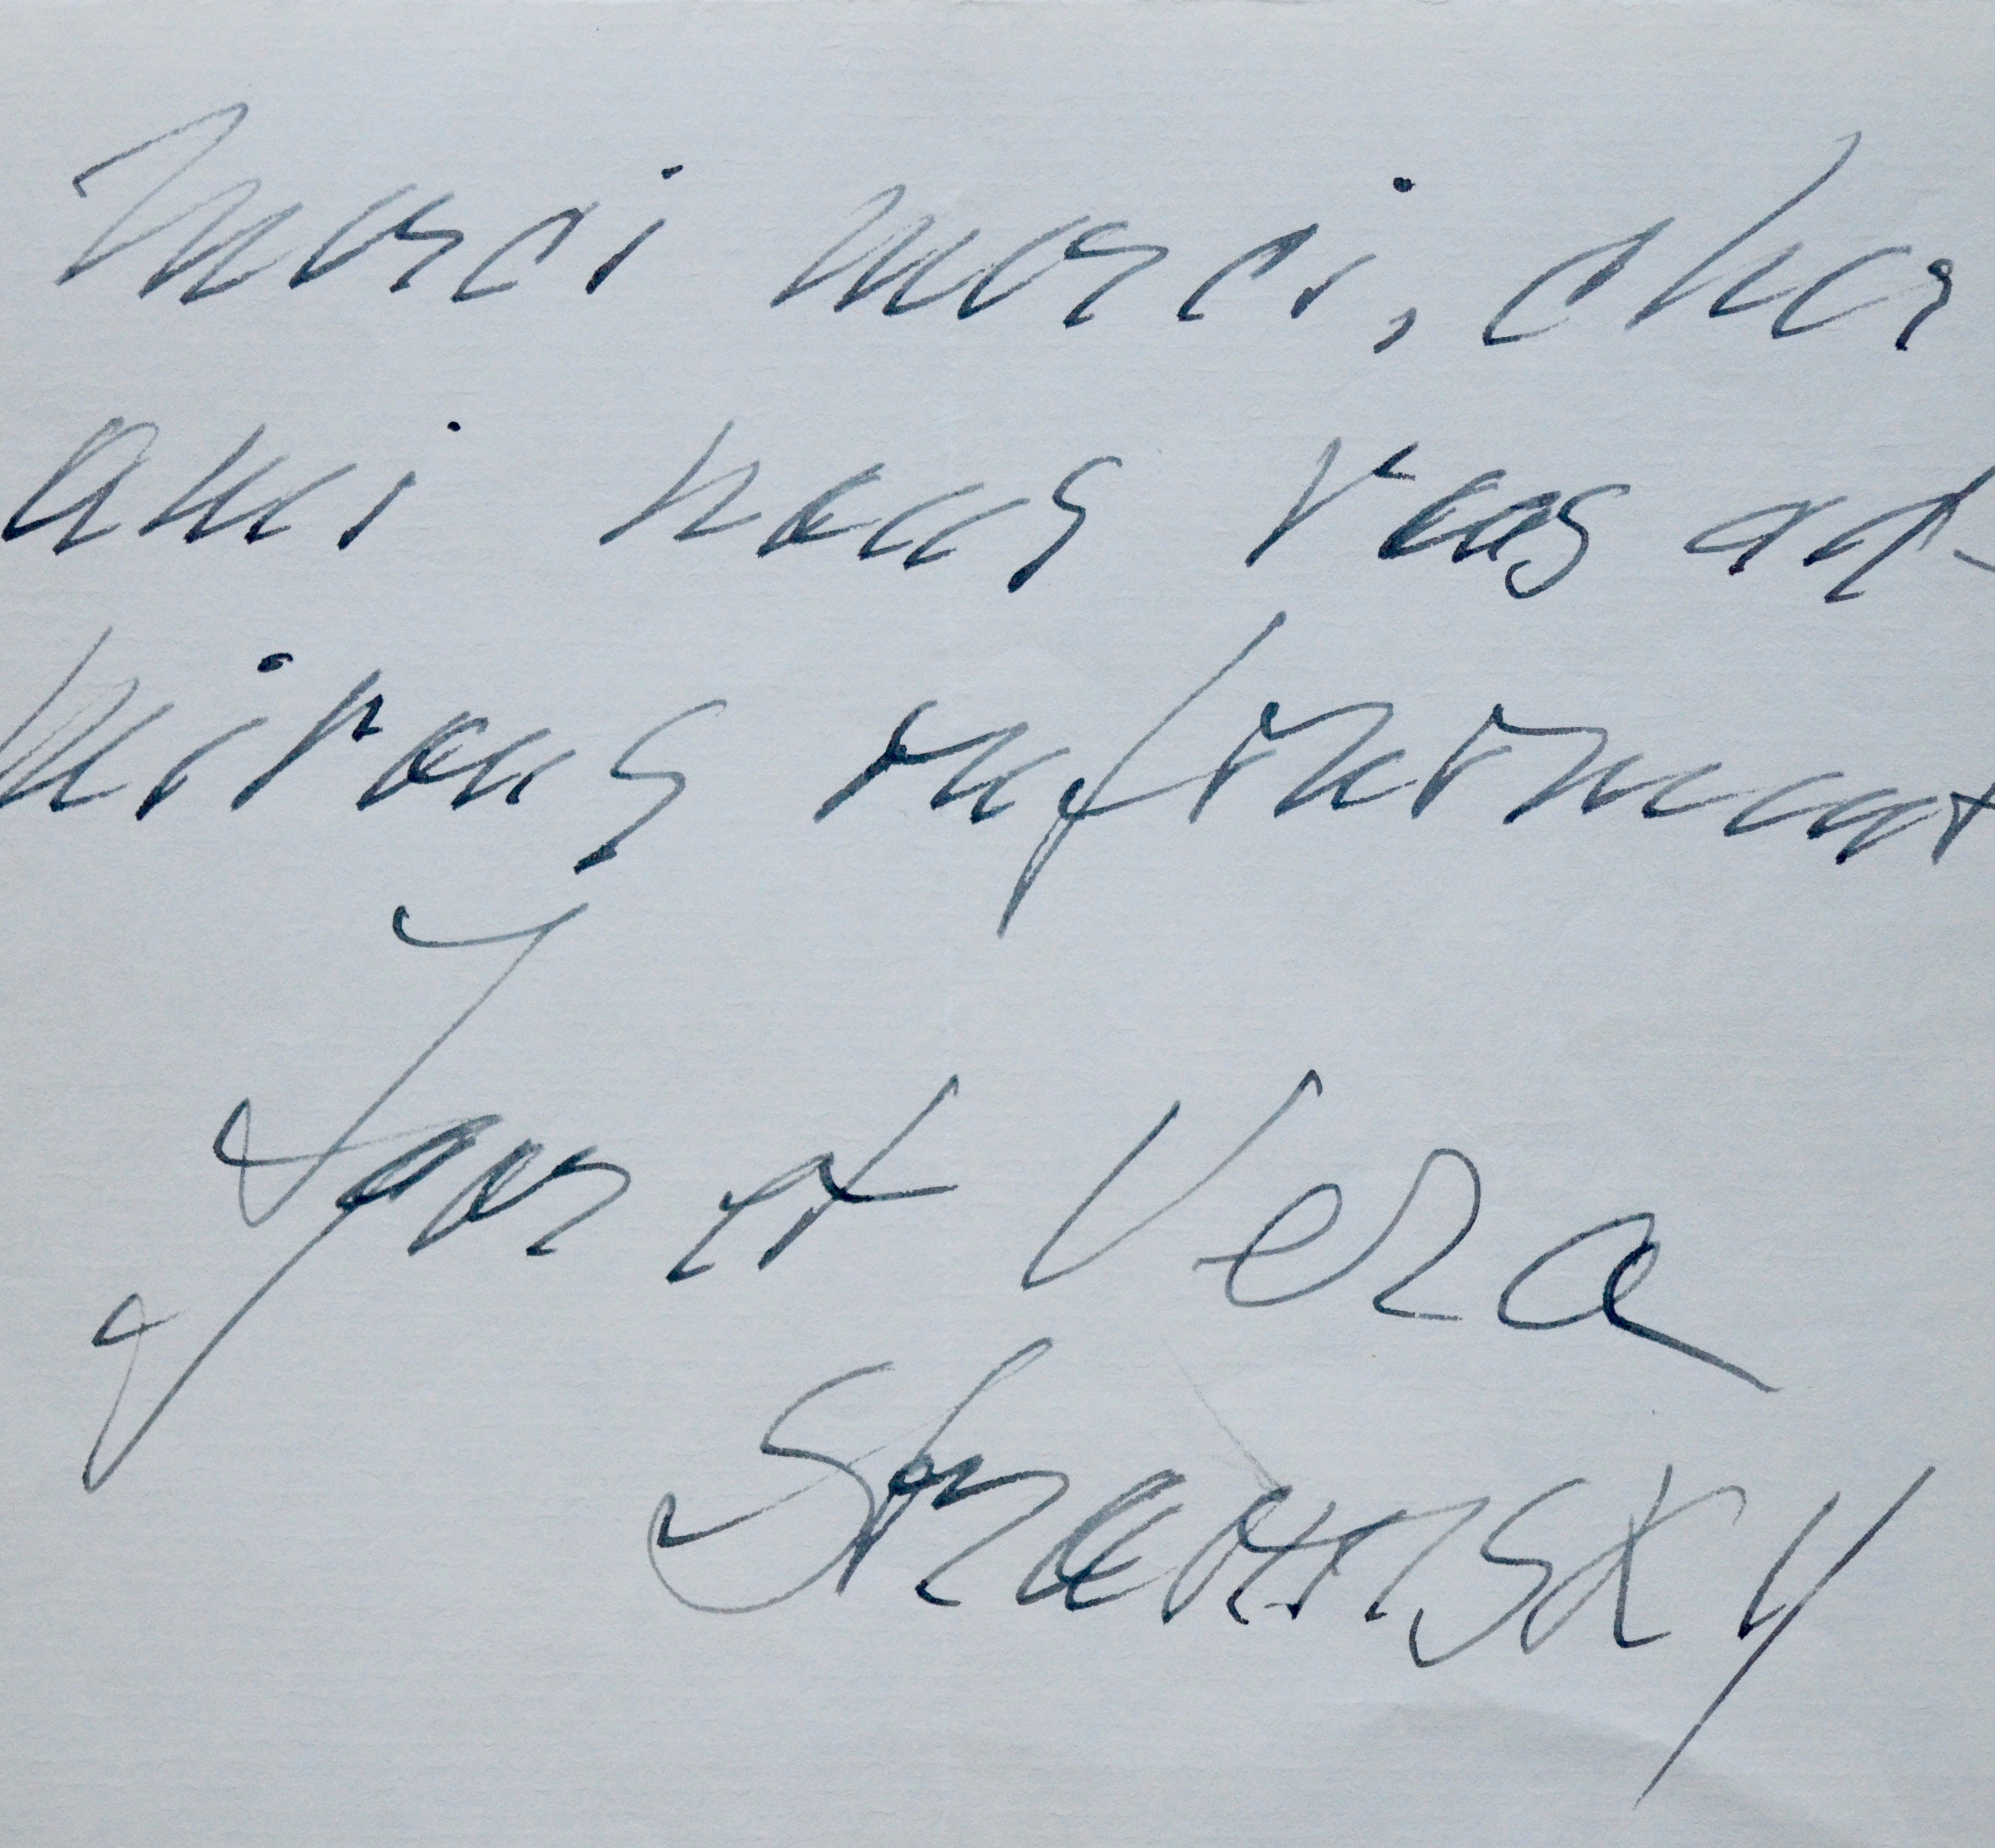 Merci merci, cher
ami nous vous ad-
mirons infiniment
Igor et Vera
Stravinsky